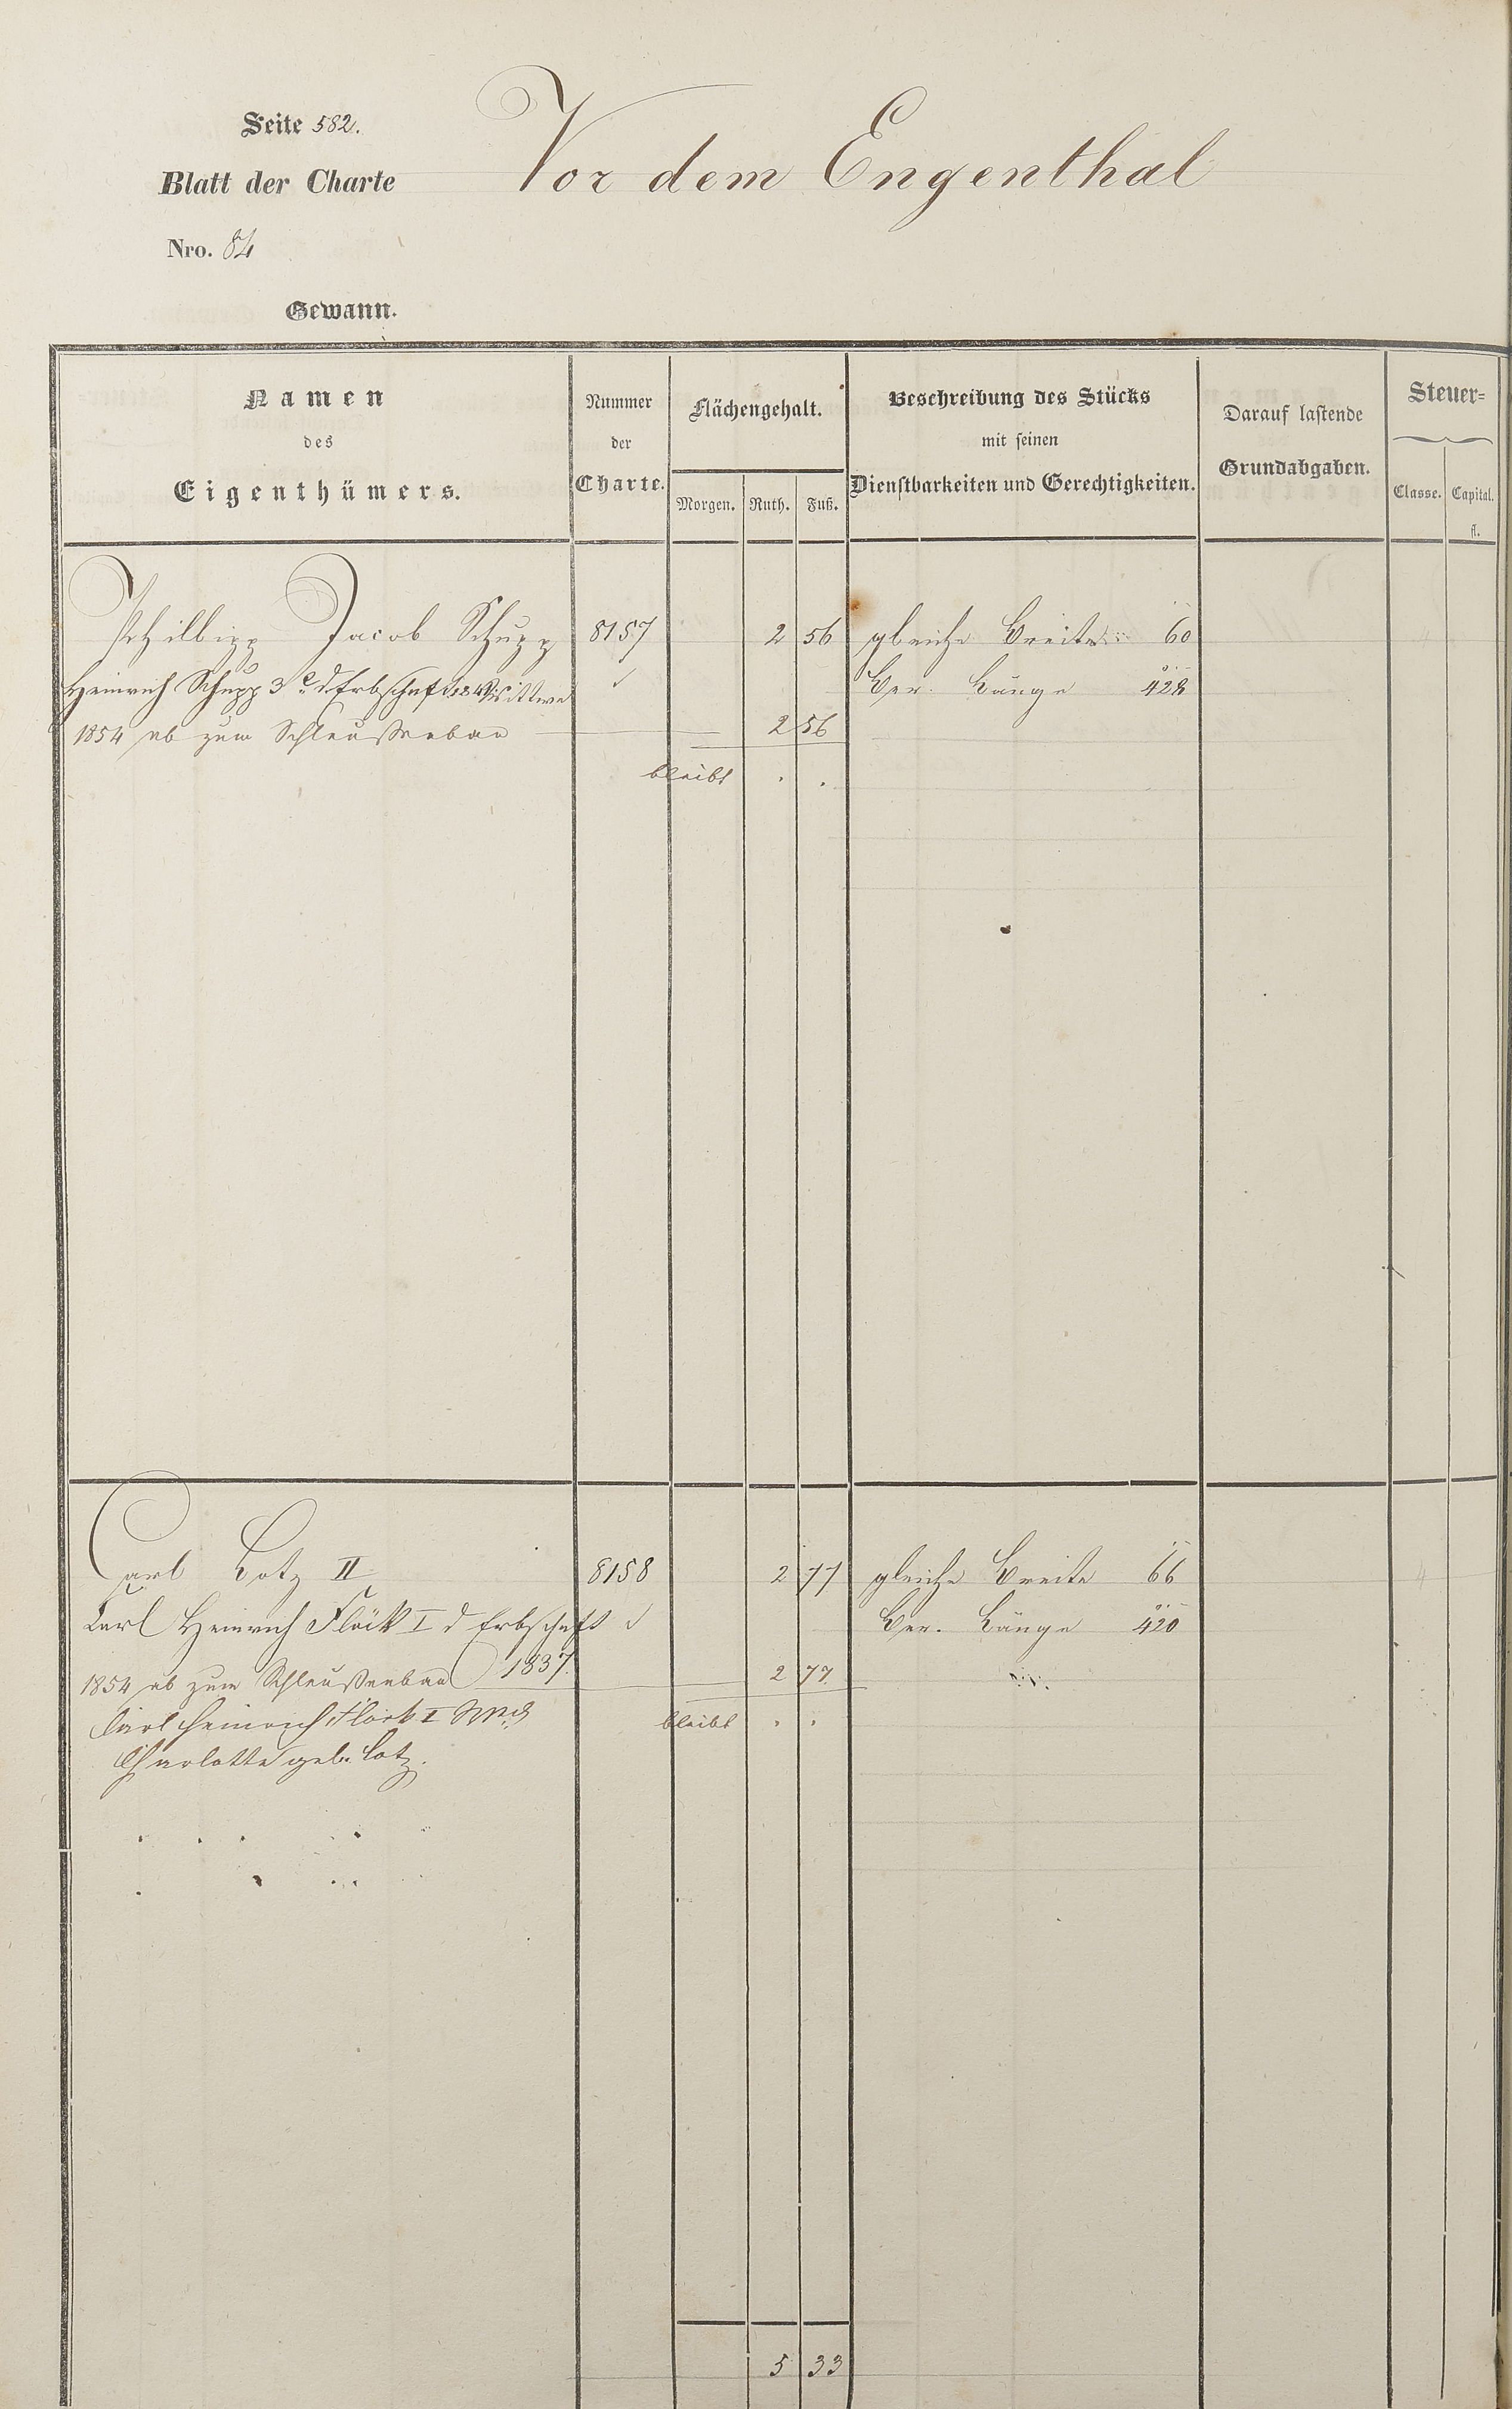 Seite 582.
Vor dem Engenthal
Blatt der Charte
Nro. 84
Gewann.
Namen
des
Eigenthümers.
Nummer
der
Charte.
Flächengehalt.
Morgen. Ruth. Fuß.
Beschreibung des Stücks
mit seinen
Dienstbarkeiten und Gerechtigkeiten.
Darauf lastende
Grundabgaben.
Steuer=
Classe. Capital.
fl.
Philipp Jacob Schupp 8157 2 56 gleiche Breite 60
Heinrich Schupp 3 d Erbschaft Wittwe Ber. Länge 428
1854 ab zum Schleußenbau 2 56
bleibt . .
Carl Lotz II 8158 2 77 gleiche Breite 66
Carl Heinrich Flöck I d Erbschaft Ber. Länge 420
1837.
1854 ab zum Schleußenbau 2 77
Carl Heinrich Flöck I bleibt . .
Charlotte geb. Lotz.
5 33